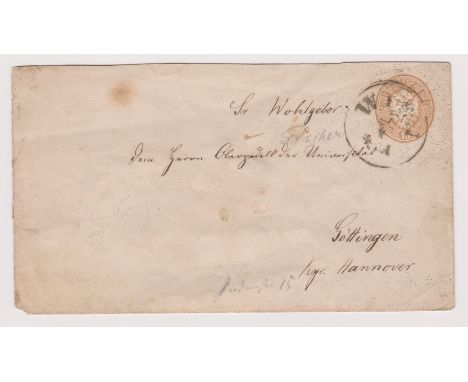 Sr Wohlgebor.
dem Herrn Oberpedell der Universität
Göttingen
Kgr. Hannover
15